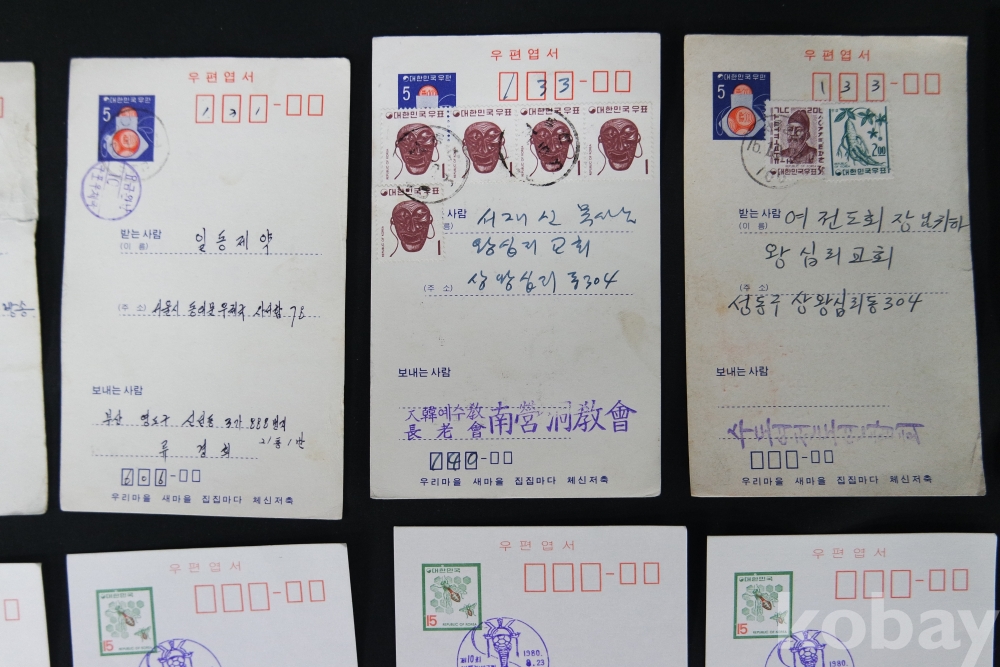 우편엽서
대한민국우편
5
131
받는 사람
(이 름)
일동제약
(주 소)
서울시 동대문우체국 사서함 78
보내는 사람
부산 영도구 신선동 3가 888번지
21통 1반
606
우리마을 새마을 집집마다 체신저축
우편엽서
대한민국우편
5
133
대한민국우표
대한민국우표
대한민국우표
대한민국우표
1
1
1
1
대한민국우표
REPUBLIC OF KOREA
1
사람
서재신 목사님
왕십리 교회
(주 소)
상왕십리동 304
보내는 사람
大韓예수教
長老會
南營洞教會
140
우리마을 새마을 집집마다 체신저축
우편엽서
5
133
대한민국우표
대한민국우표
2.00
받는 사람
(이 름)
여전도회장
왕십리교회
(주 소)
성동구 상왕십리동 304
보내는 사람
우리마을 새마을 집집마다 체신저축
우편엽서
대한민국
15
REPUBLIC OF KOREA
우편엽서
대한민국
15
REPUBLIC OF KOREA
제10회
1980.
8.23
우편엽서
대한민국
15
REPUBLIC OF KOREA
1980.
kobay